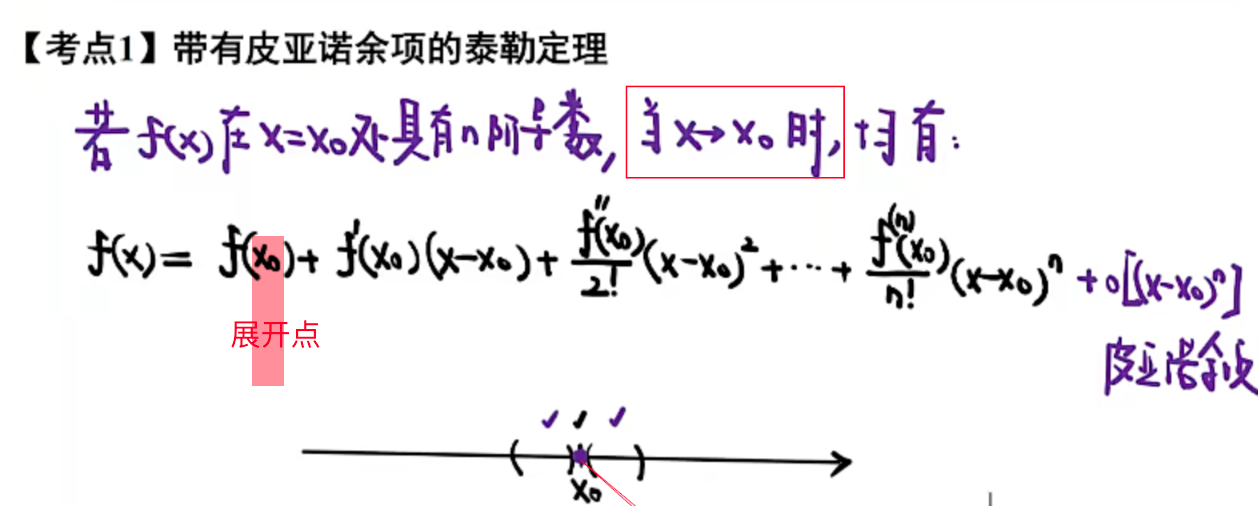 【考点1】带有皮亚诺余项的泰勒定理
若f(x)在x=x₀处具有n阶导数,当x→x₀时,均有:
f(x)= f(x₀)+ f'(x₀)(x-x₀)+ f''(x₀)/2! (x-x₀)²+⋯+ f⁽ⁿ⁾(x₀)/n! (x-x₀)ⁿ +o[(x-x₀)ⁿ]
展开点
皮亚诺余项
( )( )
x₀